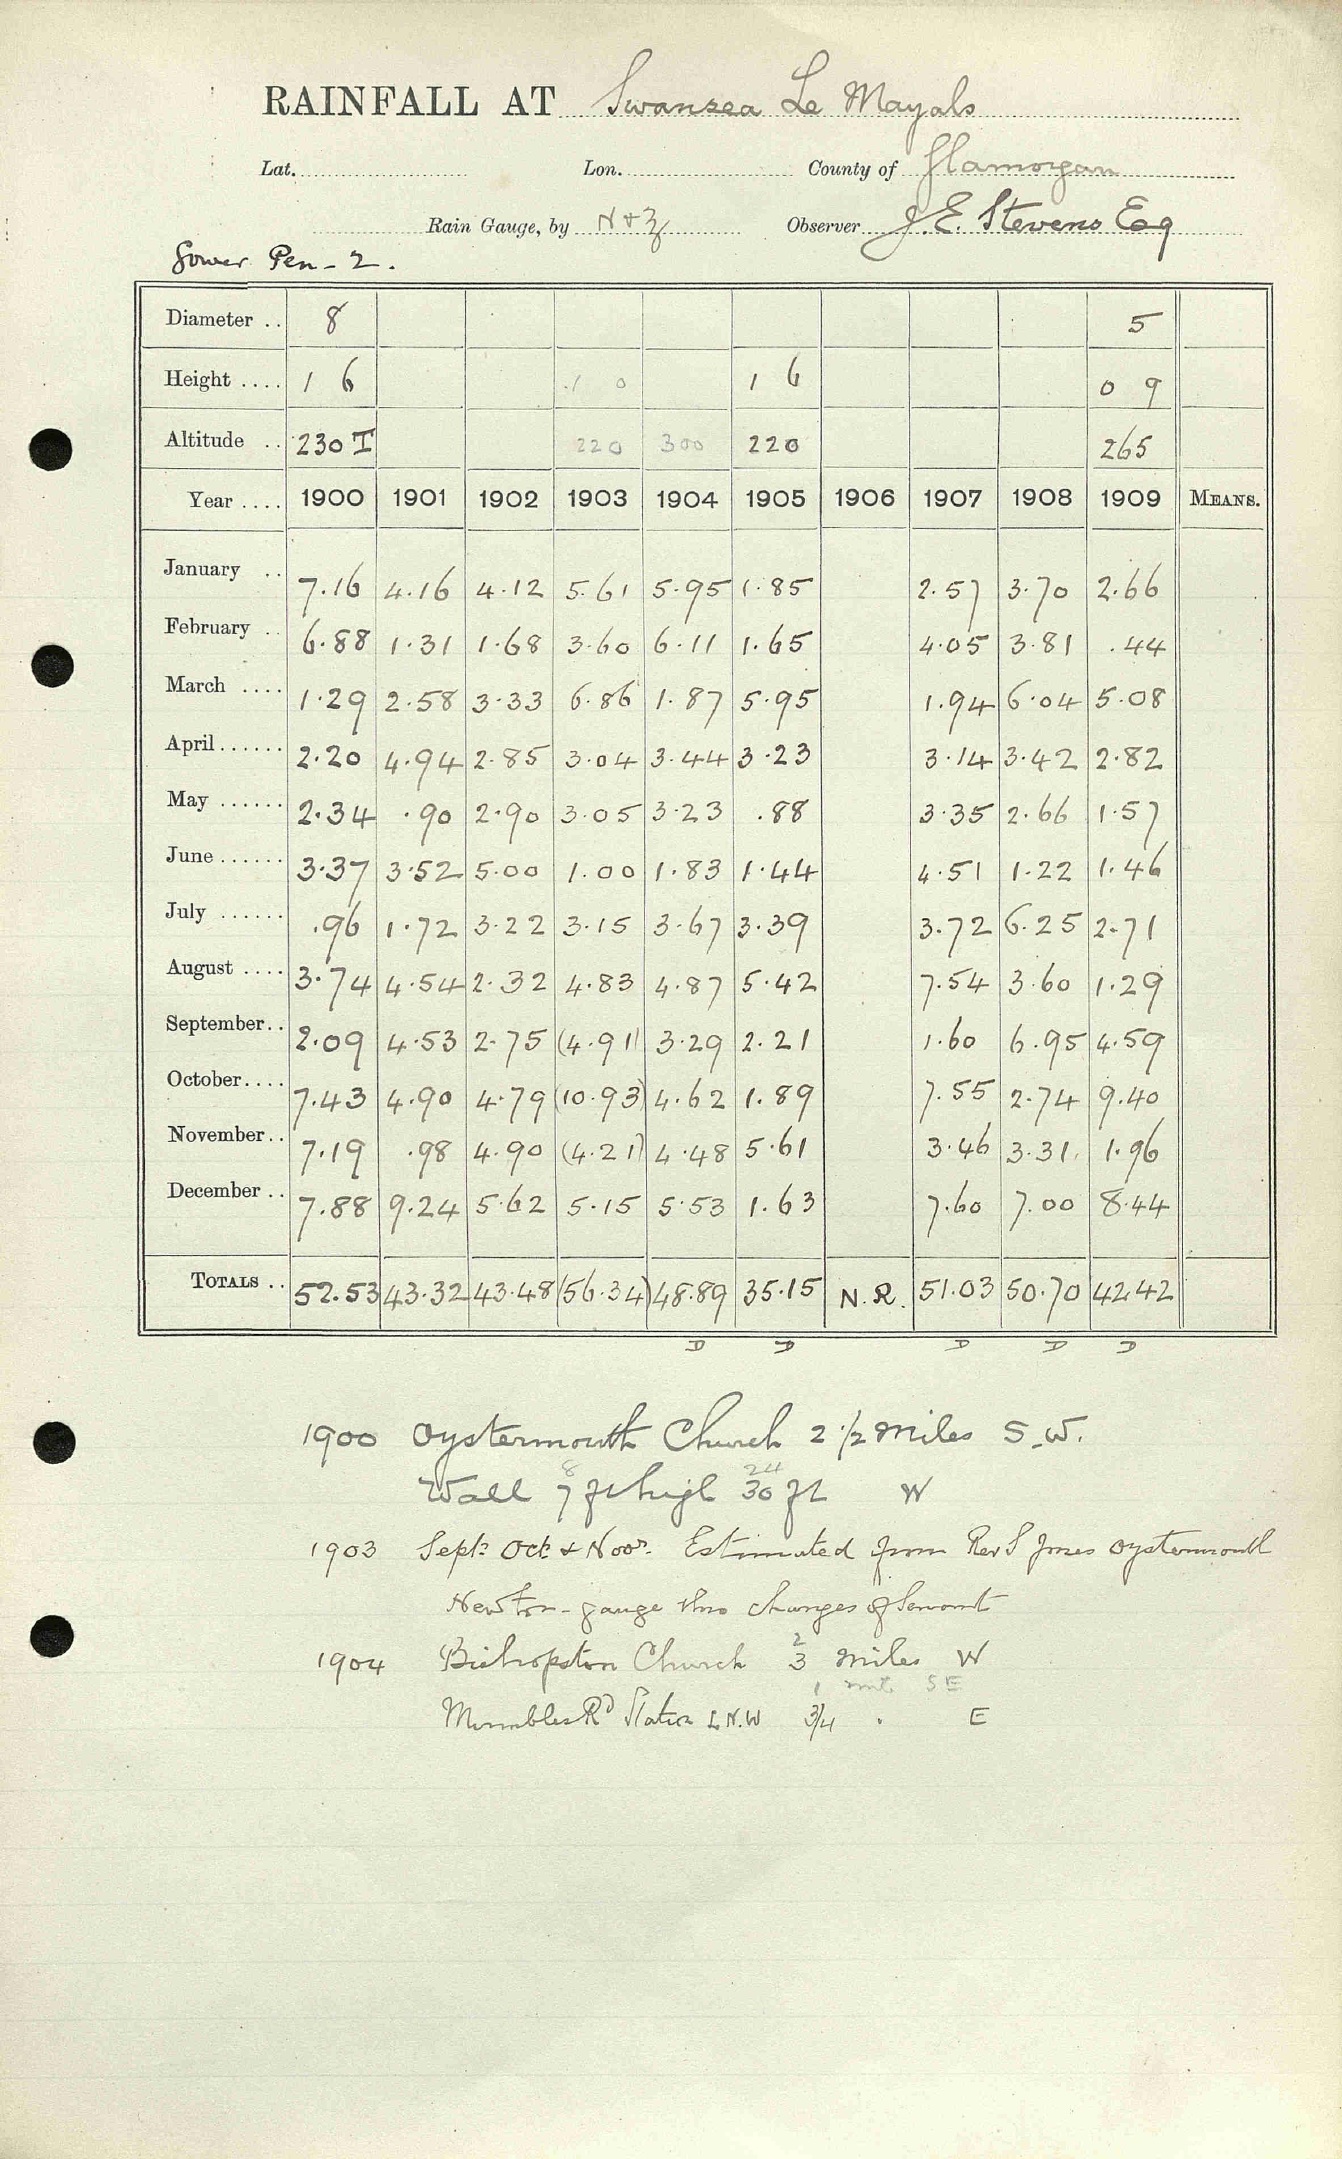 RAINFALL AT Swansea Le Mayals
Lat. Lon. County of Glamorgan
Rain Gauge, by N & Z Observer J. E. Stevens Esq
Gower Pen - 2.
Diameter .. 8 5
Height .... 1 6 1 0 1 6 0 9
Altitude .. 230 T 220 300 220 265
Year .... 1900 1901 1902 1903 1904 1905 1906 1907 1908 1909 MEANS.
January .. 7.16 4.16 4.12 5.61 5.95 1.85 2.57 3.70 2.66
February .. 6.88 1.31 1.68 3.60 6.11 1.65 4.05 3.81 .44
March .... 1.29 2.58 3.33 6.86 1.87 5.95 1.94 6.04 5.08
April ...... 2.20 4.94 2.85 3.04 3.44 3.23 3.14 3.42 2.82
May ...... 2.34 .90 2.90 3.05 3.23 .88 3.35 2.66 1.57
June ...... 3.37 3.52 5.00 1.00 1.83 1.44 4.51 1.22 1.46
July ...... .96 1.72 3.22 3.15 3.67 3.39 3.72 6.25 2.71
August .... 3.74 4.54 2.32 4.83 4.87 5.42 7.54 3.60 1.29
September.. 2.09 4.53 2.75 (4.91) 3.29 2.21 1.60 6.95 4.59
October.... 7.43 4.90 4.79 (10.93) 4.62 1.89 7.55 2.74 9.40
November.. 7.19 .98 4.90 (4.21) 4.48 5.61 3.46 3.31 1.96
December .. 7.88 9.24 5.62 5.15 5.53 1.63 7.60 7.00 8.44
TOTALS .. 52.53 43.32 43.48 (56.34) 48.89 35.15 N.R. 51.03 50.70 42.42
D D D D D
1900 Oystermouth Church 2 1/2 Miles S.W.
8 24
Wall 7 ft high 30 ft W
1903 Sept Oct & Nov. Estimated from Rev S Jones Oystermouth
Newton - gauge thro changes of Servant
2
1904 Bishopston Church 3 Miles W
1 mile SE
Mumbles Rd Station L.N.W 3/4 . E